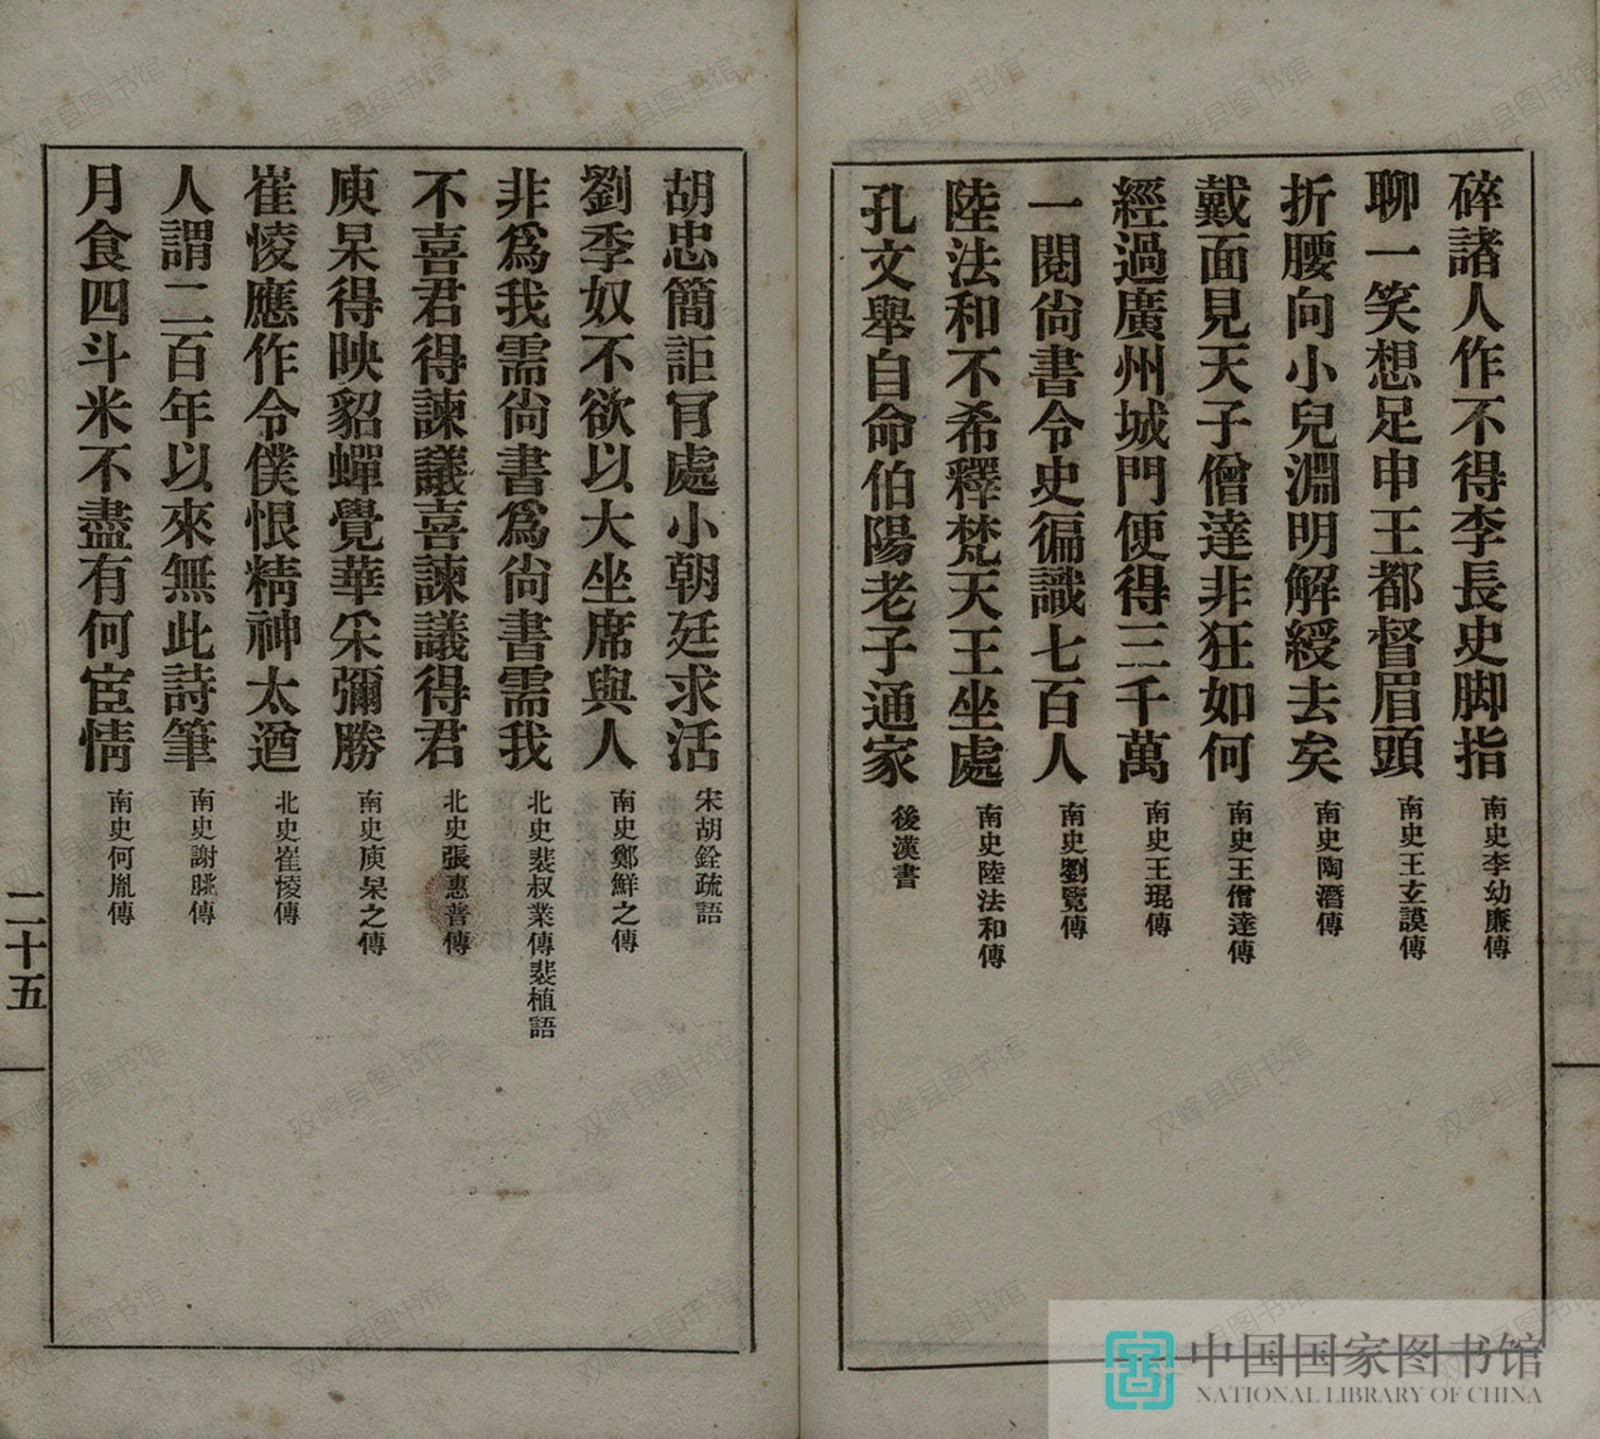 碎諸人作不得李長史脚指 南史李幼廉傳
聊一笑想足申王都督眉頭 南史王玄謨傳
折腰向小兒淵明解綬去矣 南史陶潛傳
戴面見天子僧達非狂如何 南史王僧達傳
經過廣州城門便得三千萬 南史王琨傳
一閱尙書令史徧識七百人 南史劉覽傳
陸法和不希釋梵天王坐處 南史陸法和傳
孔文舉自命伯陽老子通家 後漢書
胡忠簡詎肎處小朝廷求活 宋胡銓疏語
劉季奴不欲以大坐席與人 南史鄭鮮之傳
非爲我需尙書爲尙書需我 北史裴叔業傳裴植語
不喜君得諫議喜諫議得君 北史張惠普傳
庾杲得映貂蟬覺華采彌勝 南史庾杲之傳
崔㥄應作令僕恨精神太遒 北史崔㥄傳
人謂二百年以來無此詩筆 南史謝朓傳
月食四斗米不盡有何宦情 南史何胤傳
二十五
中国国家图书馆
NATIONAL LIBRARY OF CHINA
双峰县图书馆